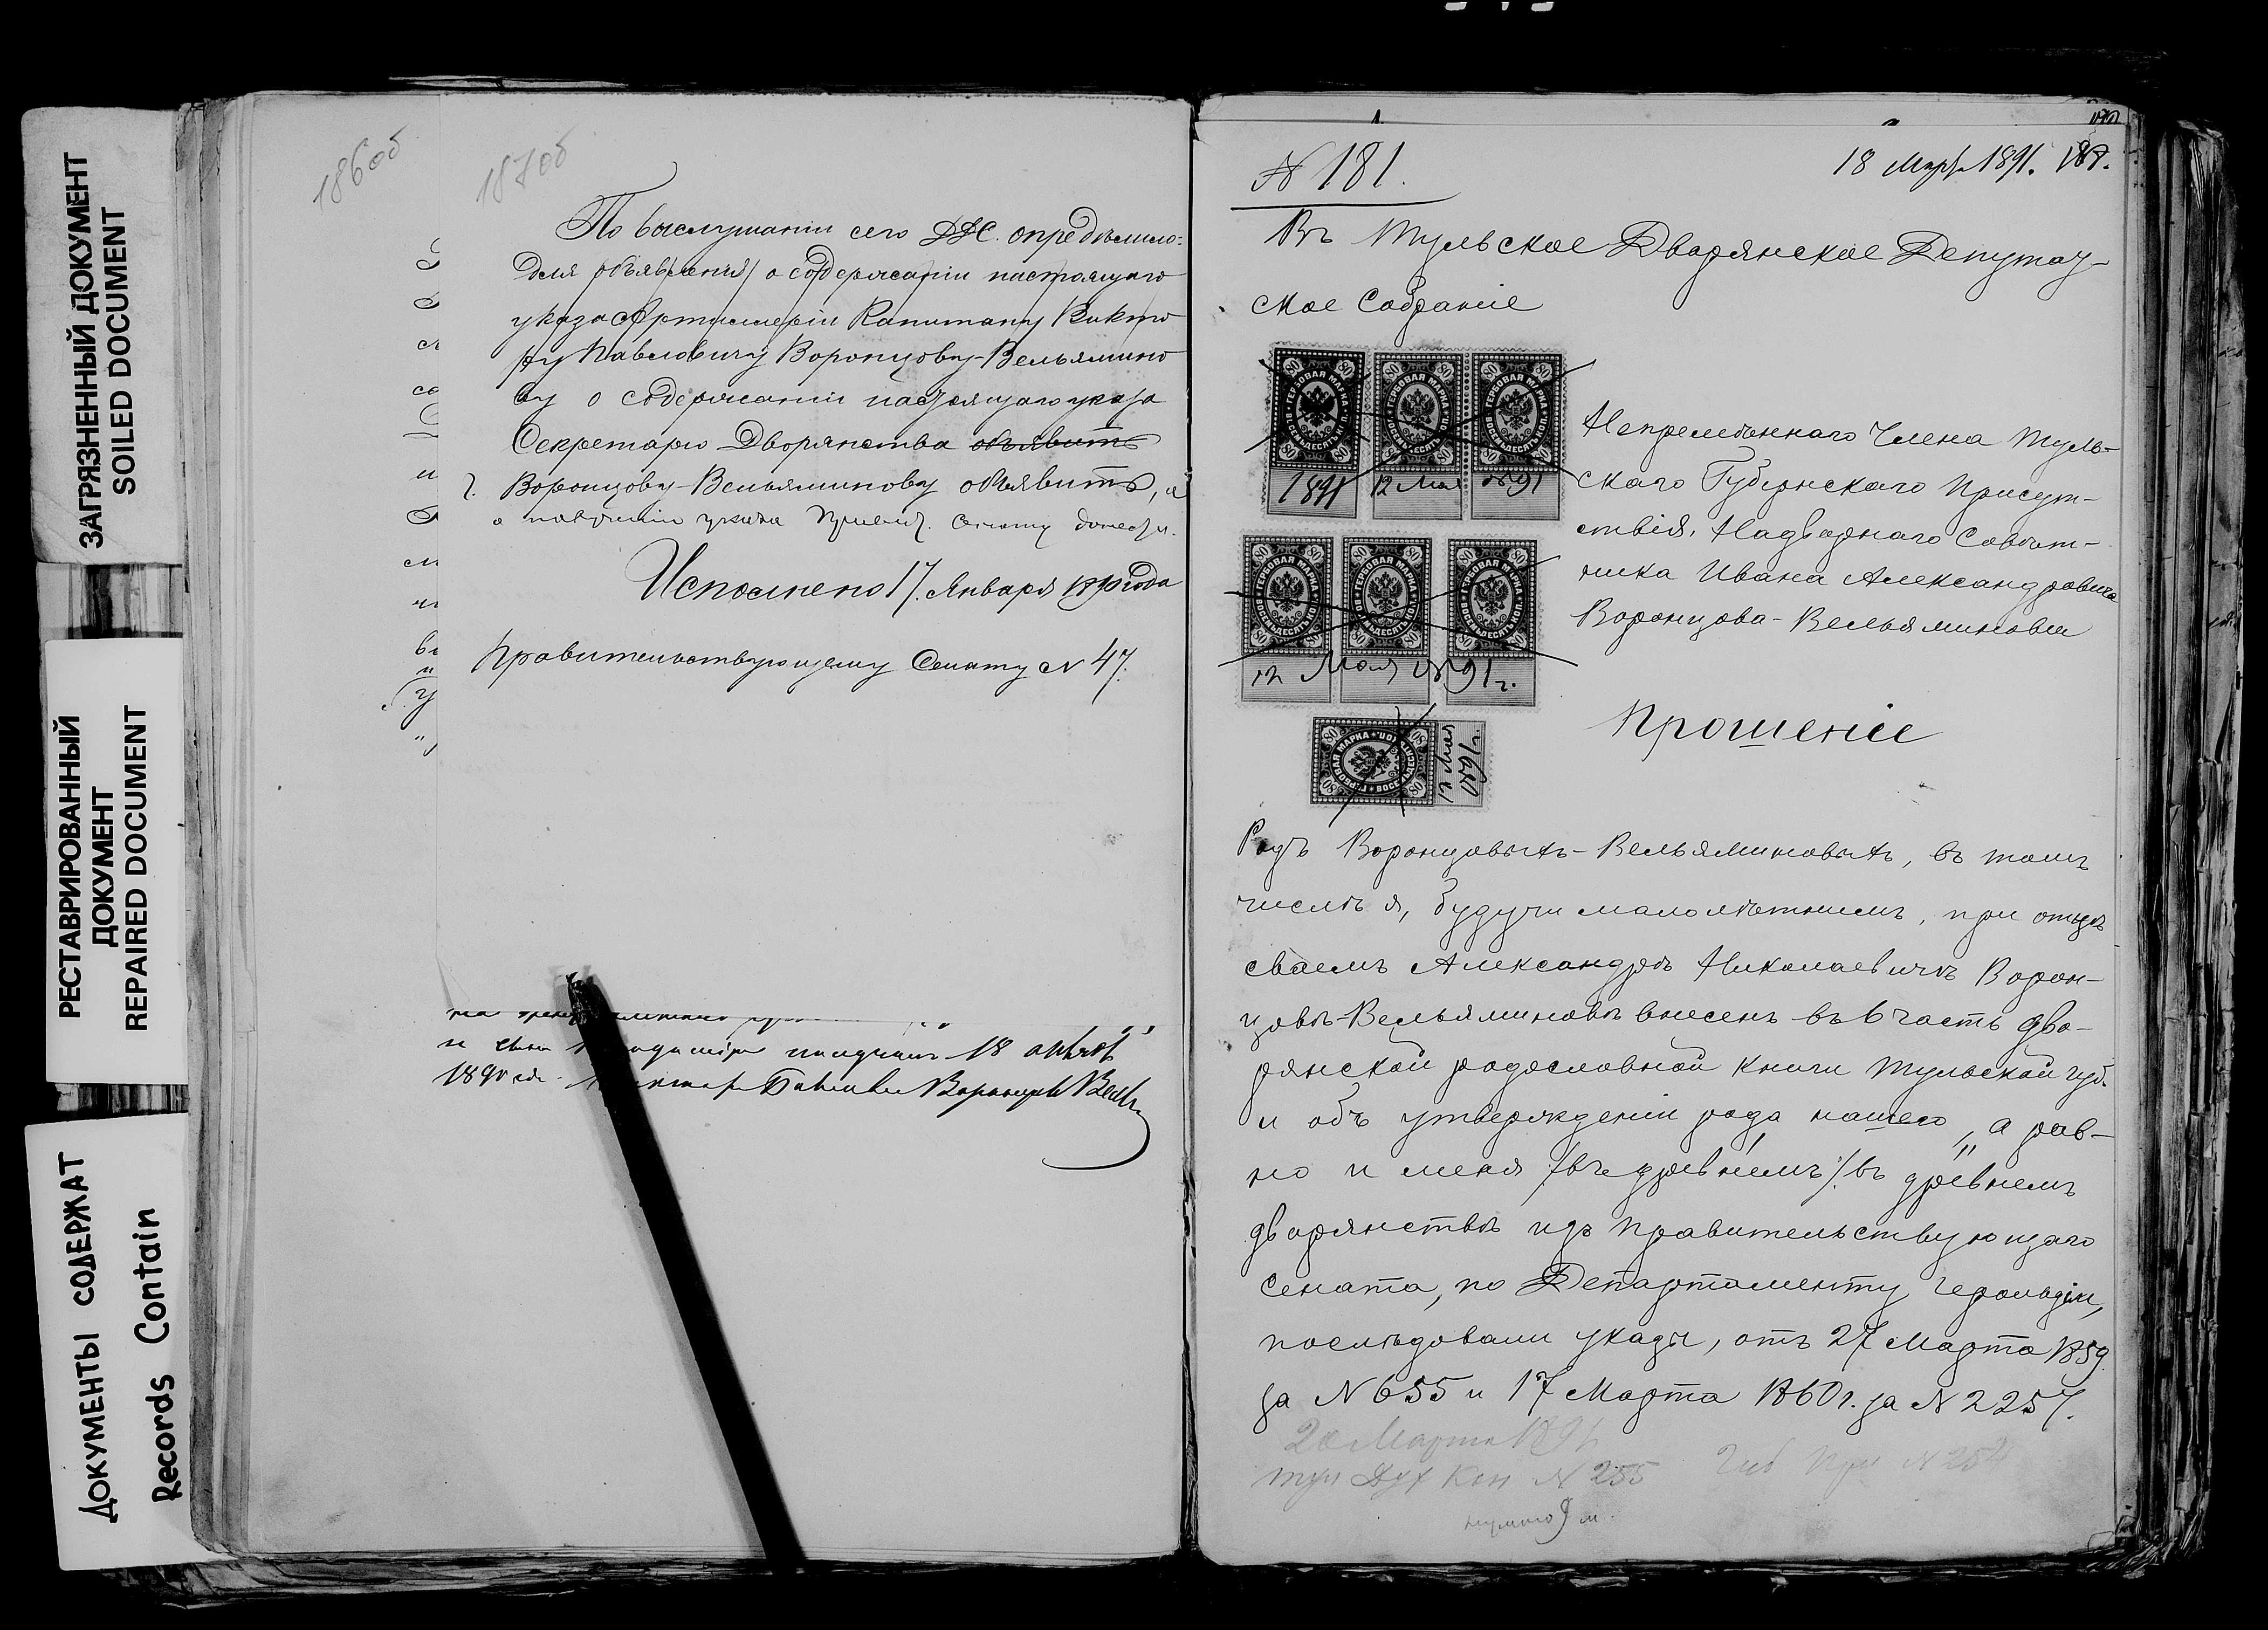 ЗАГРЯЗНЕННЫЙ ДОКУМЕНТ
SOILED DOCUMENT
РЕСТАВРИРОВАННЫЙ
ДОКУМЕНТ
REPAIRED DOCUMENT
ДОКУМЕНТЫ СОДЕРЖАТ
Records Contain
186об
187об
По выслушаніи сего ДДС. опредѣлило:
для объявленія о содержаніи настоящаго
указа Артиллеріи Капитану Викто
ру Павловичу Воронцову-Вельямино
ву о содержаніи настоящаго указа
Секретарю Дворянства объявить
г. Воронцову-Вельяминову объявить, а
о полученіи указа Правит. Сенату донести.
Исполнено 17 Января года
Правительствующему Сенату N 47.
и получилъ 18
1890 Воронцовъ
N 181.
18 Марта 1891.
Въ Тульское Дворянское Депутат-
ское Собраніе
ГЕРБОВАЯ МАРКА ВОСЕМЬДЕСЯТЪ КОП. 80
1891 12 Мая 1891
12 Мая 1891 г.
12 Мая 1891 г.
Непремѣннаго Члена Туль-
скаго Губернскаго Присут-
ствія, Надворнаго Совѣт-
ника Ивана Александровича
Воронцова-Вельяминова
Прошеніе
Родъ Воронцовыхъ-Вельяминовыхъ, въ томъ
числѣ я, будучи малолѣтнимъ, при отцѣ
своемъ Александрѣ Николаевичѣ Ворон-
цовѣ-Вельяминовѣ внесенъ въ 6 часть дво-
рянской родословной книги Тульской губ.
и объ утвержденіи рода нашего, а рав-
но и меня /въ древнемъ/ въ древнемъ
дворянствѣ изъ Правительствующаго
Сената, по Департаменту Герольдіи,
послѣдовали указы, отъ 27 Марта 1859
за N 655 и 17 Марта 1860 г. за N 2257.
20 Марта 1891
Тул Дух Кон N 255
Губ Пра N 254